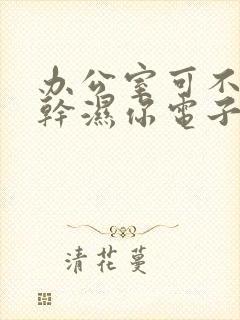 办公室可不
幹濕你電子
清花蔓